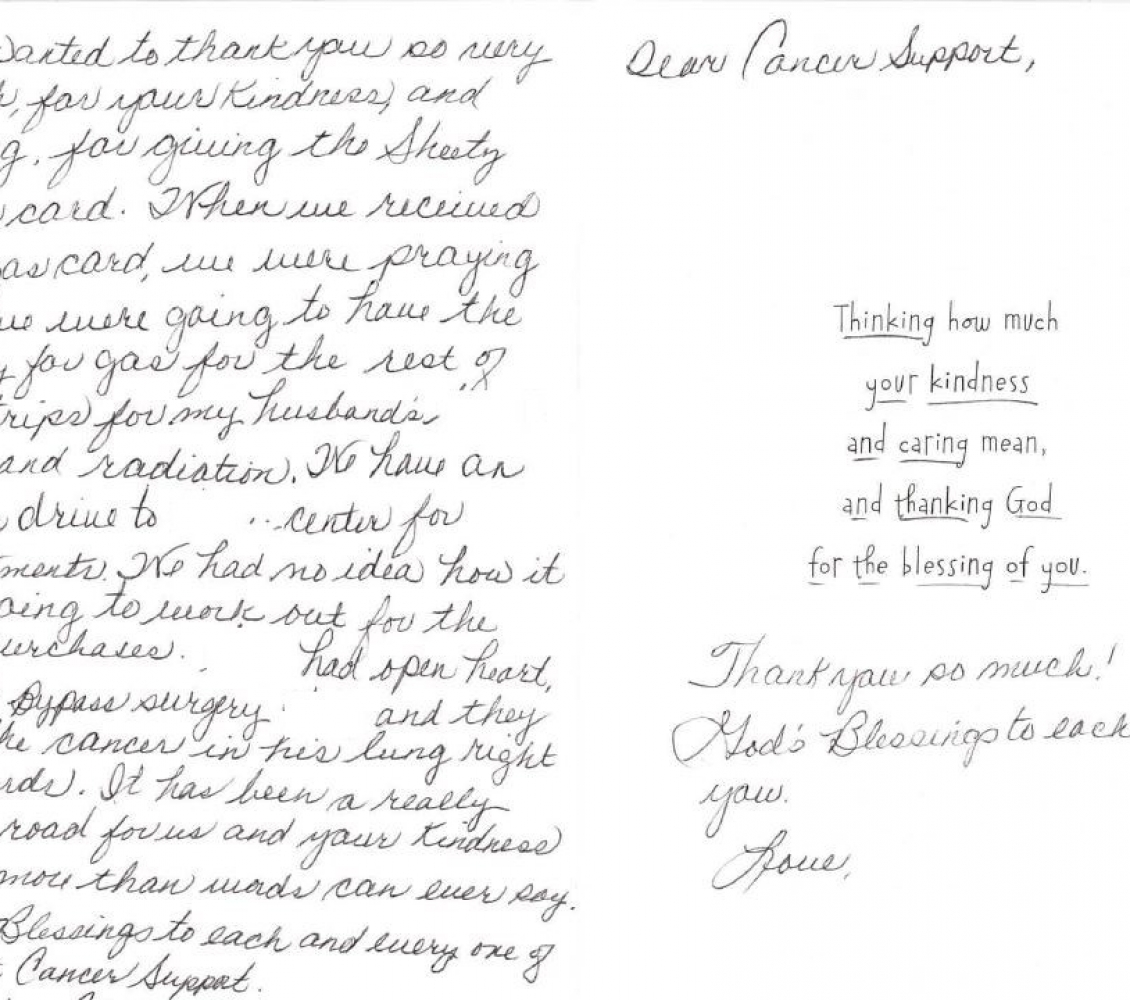 Wanted to thank you so very
, for your Kindness, and
g, for giving the Sheetz
card. When we received
as card, we were praying
we were going to have the
y for gas for the rest of
rips for my husband's
and radiation. We have an
drive to ... center for
ments. We had no idea how it
oing to work out for the
urchases. had open heart,
Bypass surgery and they
he cancer in his lung right
rds. It has been a really
road for us and your Kindness
more than words can ever say.
Blessings to each and every one of
Cancer Support.
Dear Cancer Support,
Thinking how much
your kindness
and caring mean,
and thanking God
for the blessing of you.
Thank you so much!
God's Blessings to each
you.
Love,